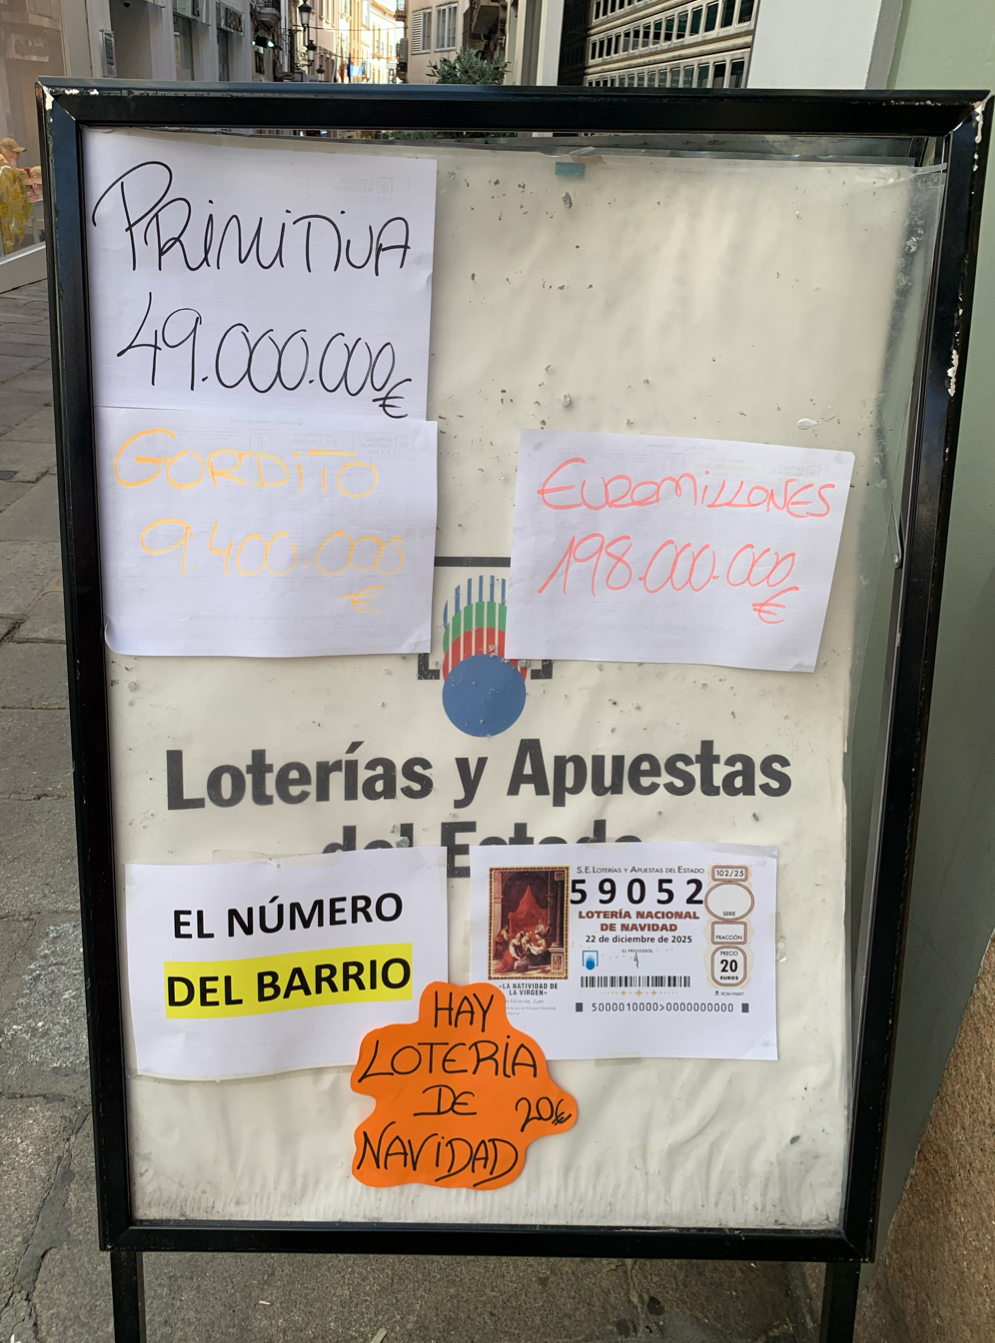 PRIMITIVA
49.000.000
€
GORDITO
9.400.000
€
EUROMILLONES
198.000.000
€
Loterías y Apuestas
del Estado
EL NÚMERO
DEL BARRIO
S.E. LOTERÍAS Y APUESTAS DEL ESTADO
59052
LOTERÍA NACIONAL
DE NAVIDAD
22 de diciembre de 2025
EL PRESIDENTE
102/25
SERIE
FRACCIÓN
PRECIO
20
EUROS
–LA NATIVIDAD DE
LA VIRGEN–
5000010000>0000000000
HAY
LOTERIA
DE 20€
NAVIDAD